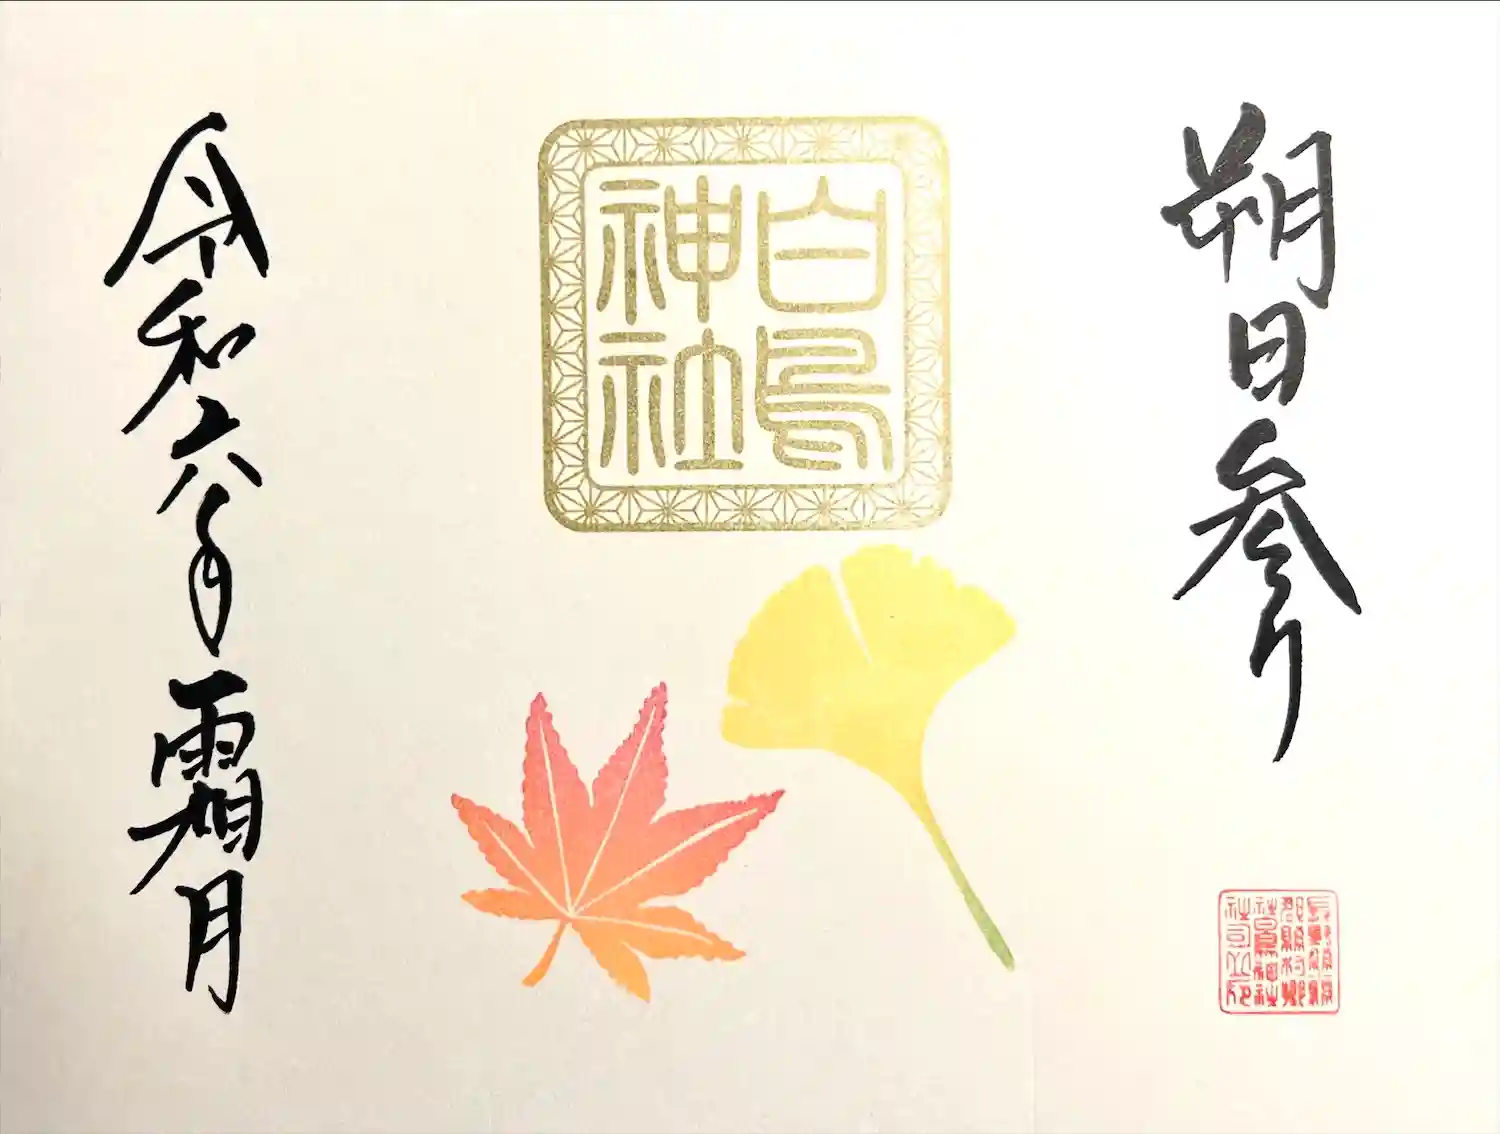 朔日参り
白鳥
神社
令和六年霜月